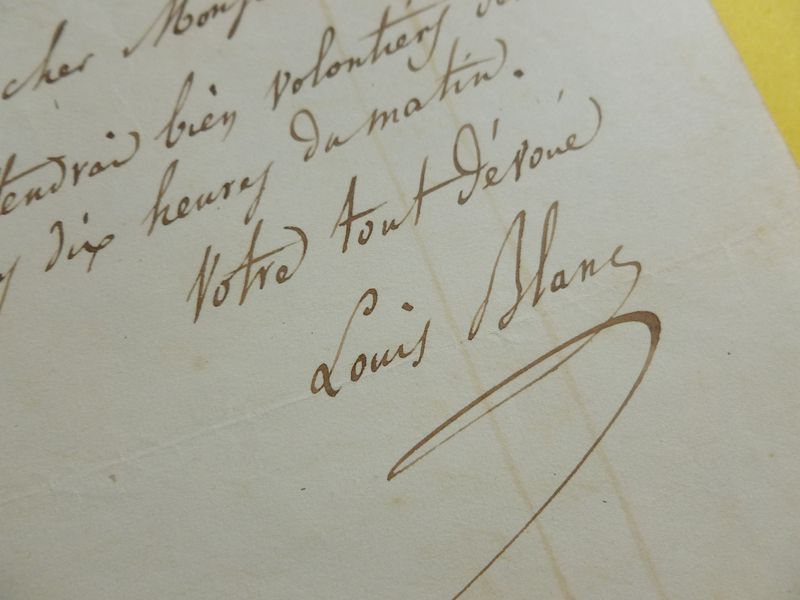 cher Mons
tendrai bien volontiers
dix heures du matin.
Votre tout dévoué
Louis Blanc